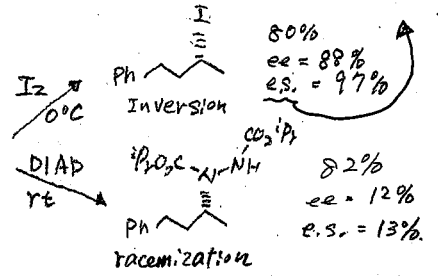 I
80%
ee = 88%
e.s. = 97%
I2
0°C
Ph
Inversion
CO2iPr
iPrO2C
N
NH
DIAD
rt
82%
ee = 12%
e.s. = 13%.
Ph
racemization